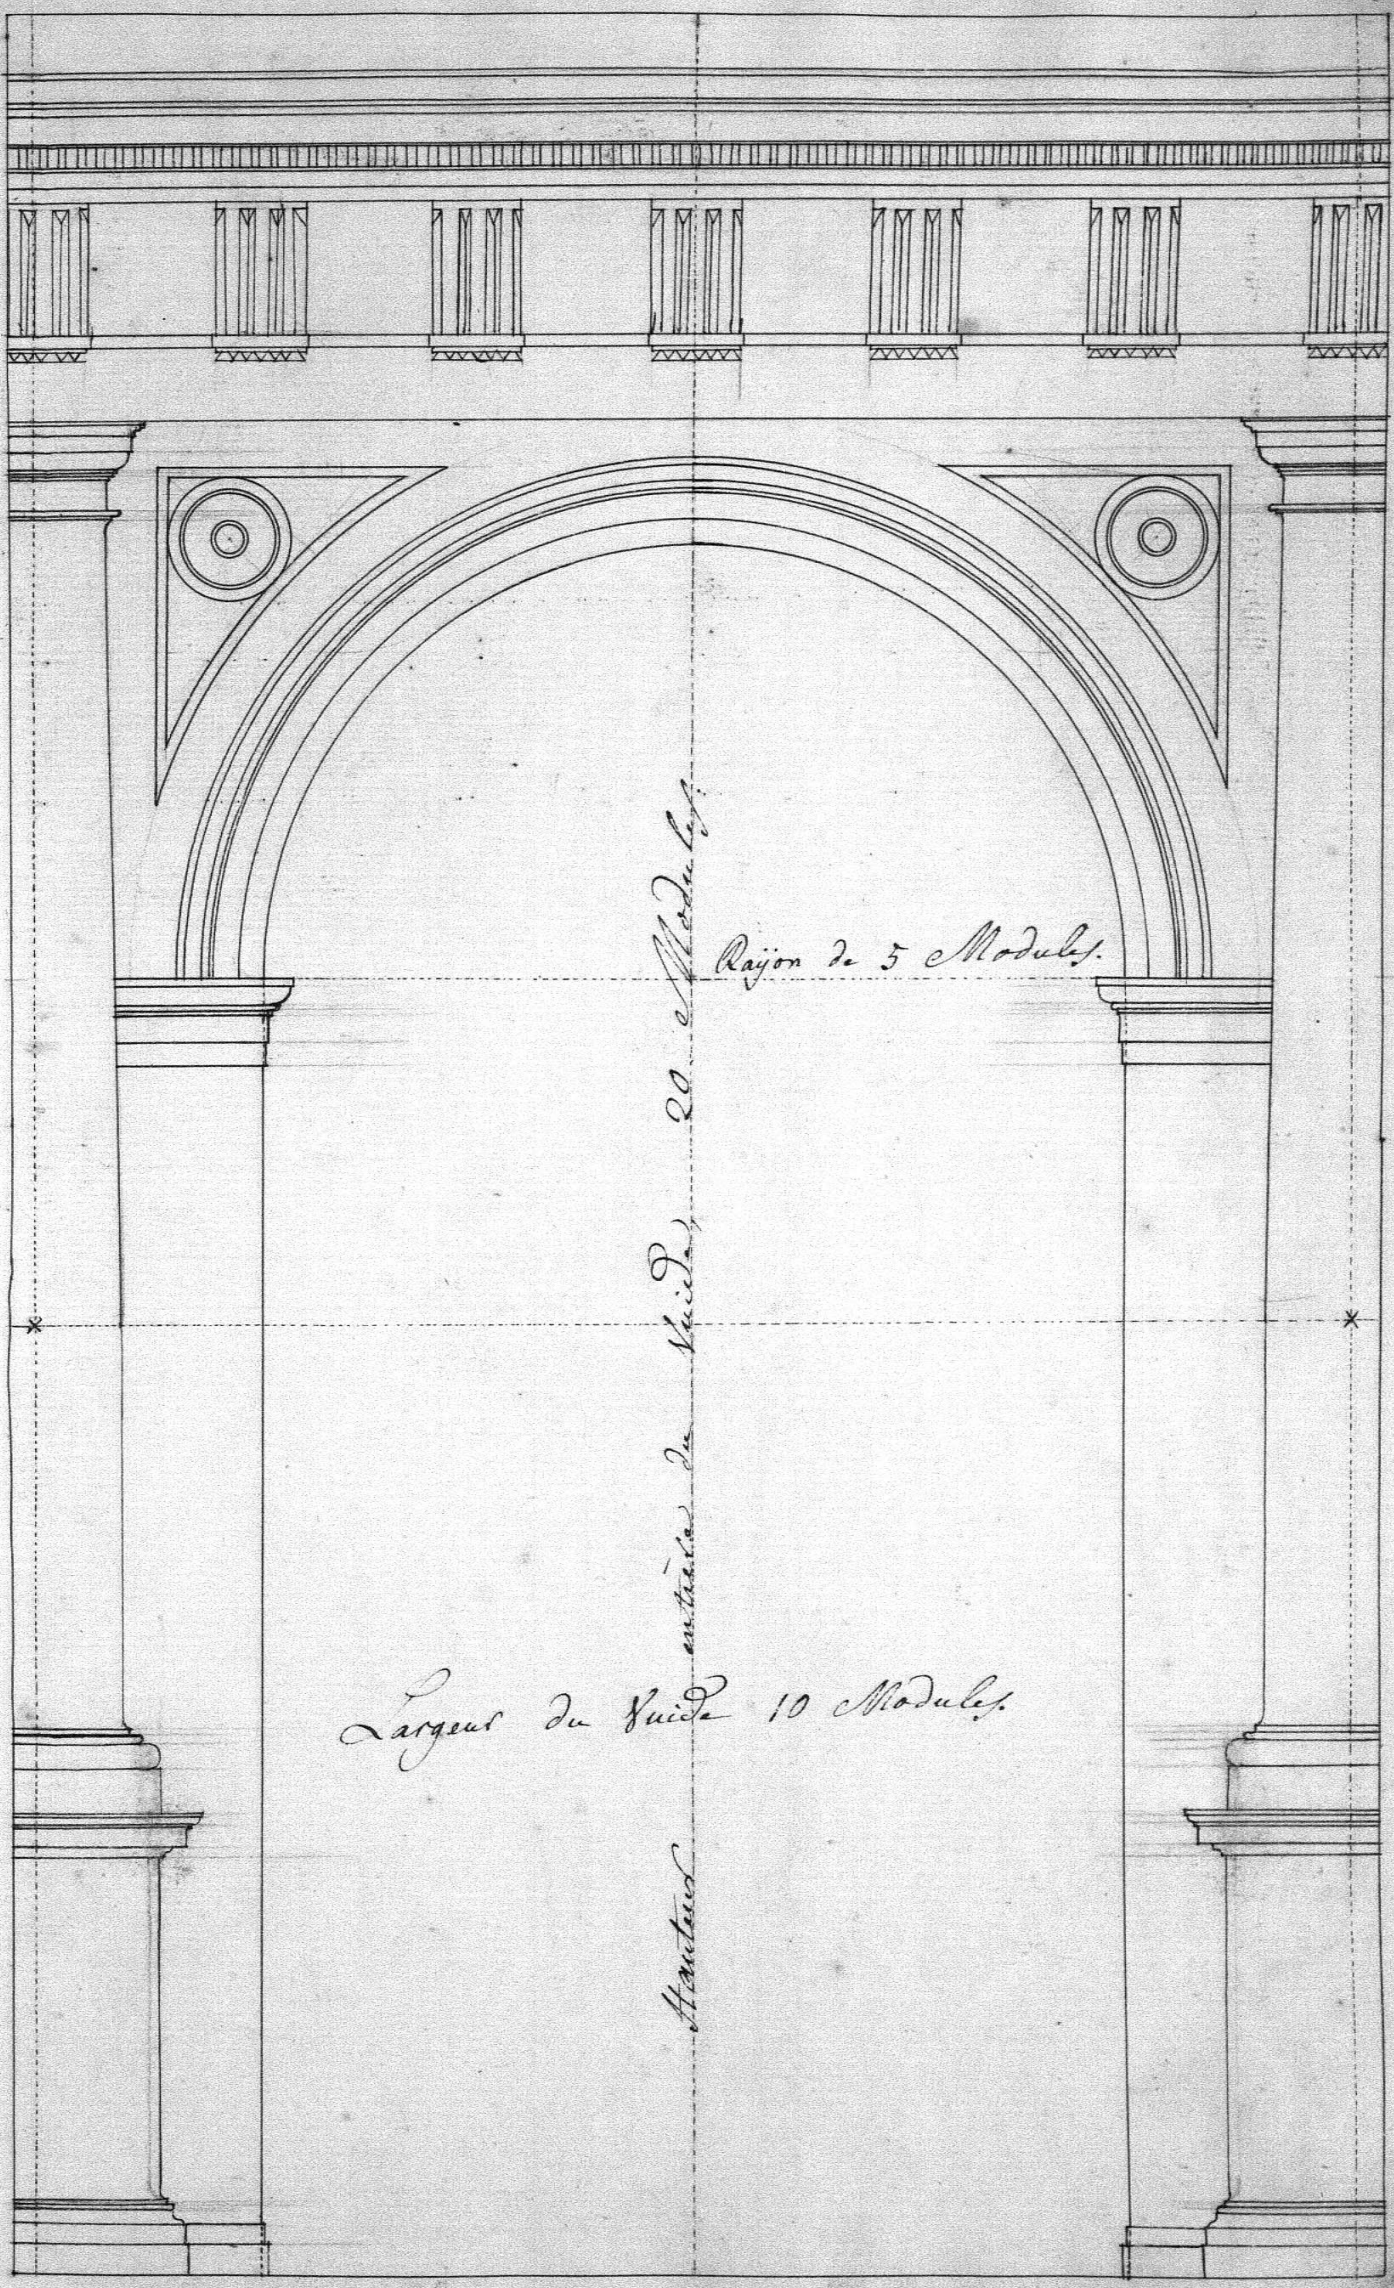 Raÿon de 5 Modules.
Hauteur entière du Vuide, 20 Modules.
Largeur du Vuide 10 Modules.